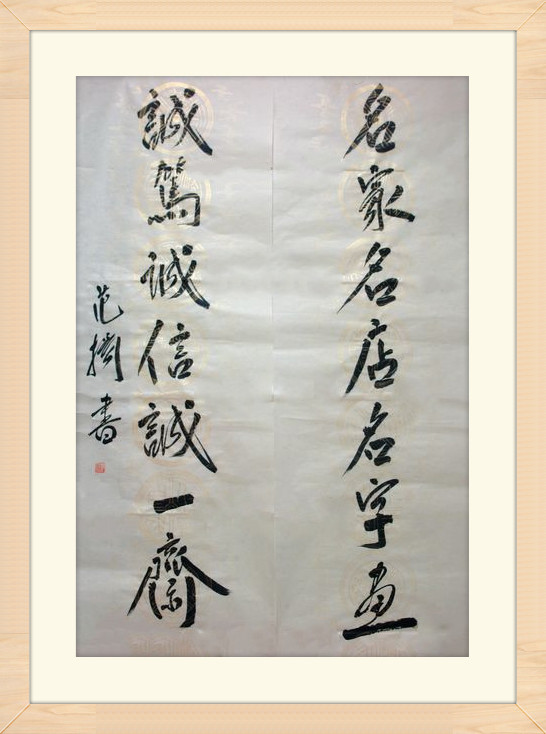 名家名店名字画
誠篤誠信誠一齋
范 書